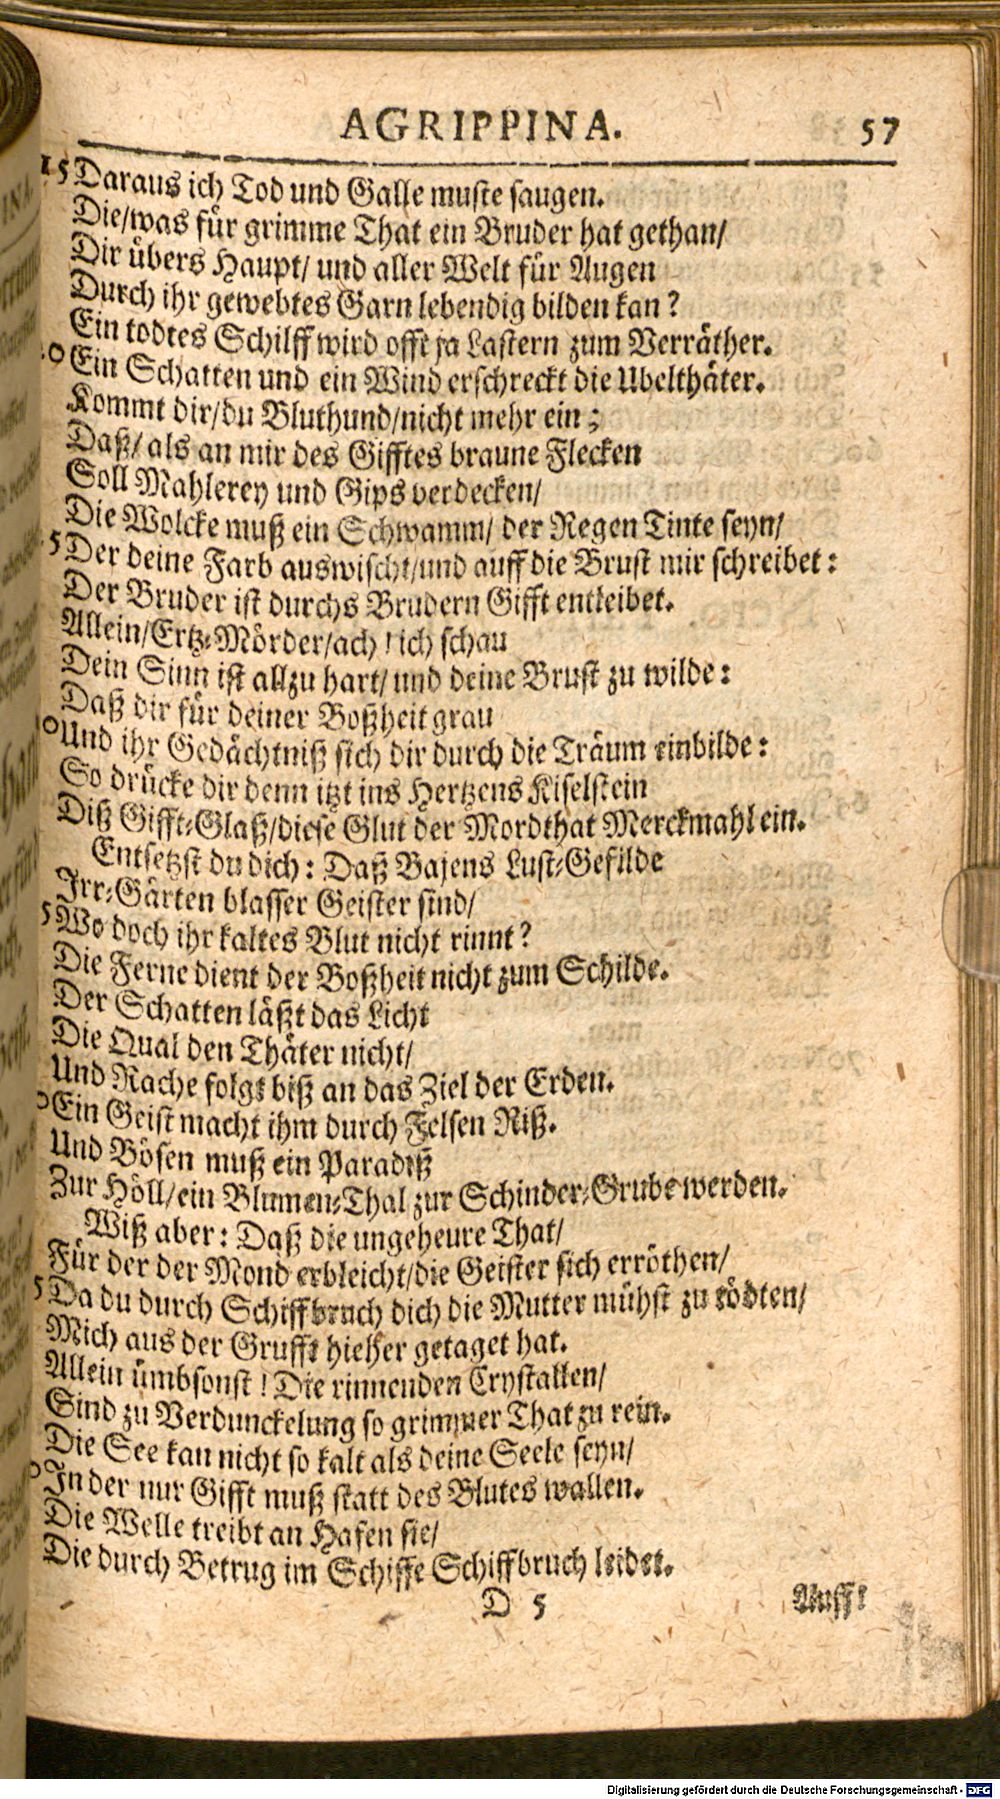 AGRIPPINA. 57
15 Daraus ich Tod und Galle muste saugen.
Die/was für grimme That ein Bruder hat gethan/
Dir übers Haupt/ und aller Welt für Augen
Durch ihr gewebtes Garn lebendig bilden kan?
Ein todtes Schilff wird offt ja Lastern zum Verräther.
0 Ein Schatten und ein Wind erschreckt die Ubelthäter.
Kommt dir/du Bluthund/nicht mehr ein;
Daß/ als an mir des Gifftes braune Flecken
Soll Mahlerey und Gips verdecken/
Die Wolcke muß ein Schwamm/ der Regen Tinte seyn/
5 Der deine Farb auswischt/und auff die Brust mir schreibet:
Der Bruder ist durchs Brudern Gifft entleibet.
Allein/Ertz-Mörder/ach! ich schau
Dein Sinn ist allzu hart/ und deine Brust zu wilde:
Daß dir für deiner Boßheit grau
0 Und ihr Gedächtniß sich dir durch die Träum einbilde:
So drücke dir denn itzt ins Hertzens Kiselstein
Diß Gifft-Glaß/diese Glut der Mordthat Merckmahl ein.
Entsetzst du dich: Daß Bajens Lust-Gefilde
Irr-Gärten blasser Geister sind/
5 Wo doch ihr kaltes Blut nicht rinnt?
Die Ferne dient der Boßheit nicht zum Schilde.
Der Schatten läßt das Licht
Die Qual den Thäter nicht/
Und Rache folgt biß an das Ziel der Erden.
0 Ein Geist macht ihm durch Felsen Riß.
Und Bösen muß ein Paradiß
Zur Höll/ein Blumen-Thal zur Schinder-Grube werden.
Wiß aber: Daß die ungeheure That/
Für der der Mond erbleicht/die Geister sich erröthen/
5 Da du durch Schiffbruch dich die Mutter mühst zu tödten/
Mich aus der Grufft hieher getaget hat.
Allein ümbsonst! Die rinnenden Crystallen/
Sind zu Verdunckelung so grimmer That zu rein.
Die See kan nicht so kalt als deine Seele seyn/
0 In der nur Gifft muß statt des Blutes wallen.
Die Welle treibt an Hafen sie/
Die durch Betrug im Schiffe Schiffbruch leidet.
D 5 Auff!
Digitalisierung gefördert durch die Deutsche Forschungsgemeinschaft - DFG